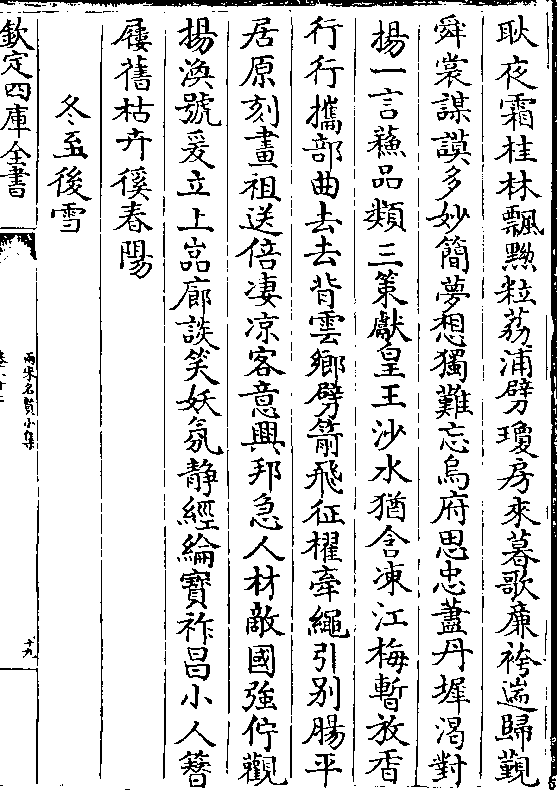 耿夜霜桂林飄黦粒荔浦劈瓊房來暮歌廉袴遄歸覲
舜裳謀謨多妙簡夢想獨難忘烏府思忠藎丹墀渴對
揚一言蘓品類三策獻皇王沙水猶含凍江梅暫放香
行行攜部曲去去背雲鄉劈箭飛征櫂牽繩引别腸平
居原刻畫祖送倍凄凉客意興邦急人材敵國強佇觀
揚渙號爰立上嵓廊談笑妖氛静經綸寶祚昌小人簪
屨舊枯卉徯春陽
冬至後雪
欽定四庫全書
兩宋名賢小集
十九